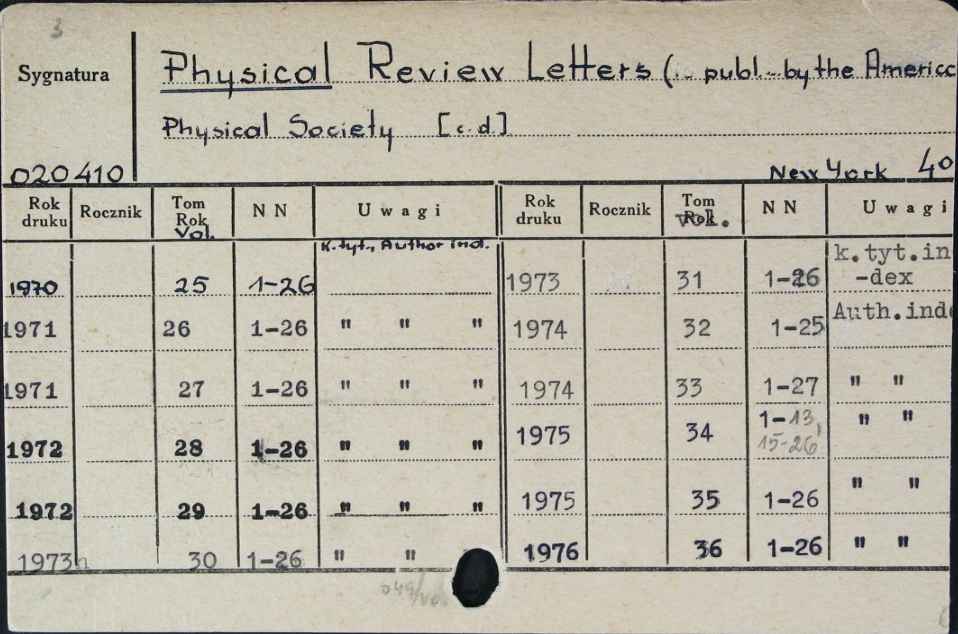 3
Sygnatura
Physical Review Letters (.. publ. by the America
Physical Society [c.d.]
020410
New York 4o
Rok druku Rocznik Tom Rok Vol. N N Uwagi Rok druku Rocznik Tom Rok Vol. N N Uwagi
1970 25 1-26 K.tyt., Author ind. 1973 31 1-26 k.tyt.in-dex
1971 26 1-26 " " " 1974 32 1-25 Auth.inde
1971 27 1-26 " " " 1974 33 1-27 " "
1972 28 1-26 " " " 1975 34 1-13, 15-26 " "
1972 29 1-26 " " " 1975 35 1-26 " "
1973 30 1-26 " " 1976 36 1-26 " "